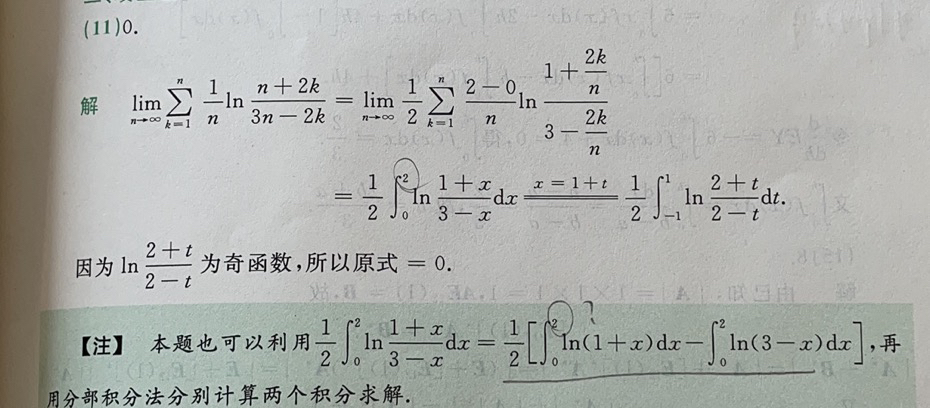 (11)0.
解 lim_{n→∞} ∑_{k=1}^{n} \frac{1}{n} ln \frac{n+2k}{3n-2k} = lim_{n→∞} \frac{1}{2} ∑_{k=1}^{n} \frac{2-0}{n} ln \frac{1+\frac{2k}{n}}{3-\frac{2k}{n}}
= \frac{1}{2} ∫_{0}^{2} ln \frac{1+x}{3-x} dx \xlongequal{x=1+t} \frac{1}{2} ∫_{-1}^{1} ln \frac{2+t}{2-t} dt.
因为 ln \frac{2+t}{2-t} 为奇函数,所以原式 = 0.
【注】 本题也可以利用 \frac{1}{2} ∫_{0}^{2} ln \frac{1+x}{3-x} dx = \frac{1}{2} [∫_{0}^{2} ln(1+x)dx - ∫_{0}^{2} ln(3-x)dx],再
?
用分部积分法分别计算两个积分求解.